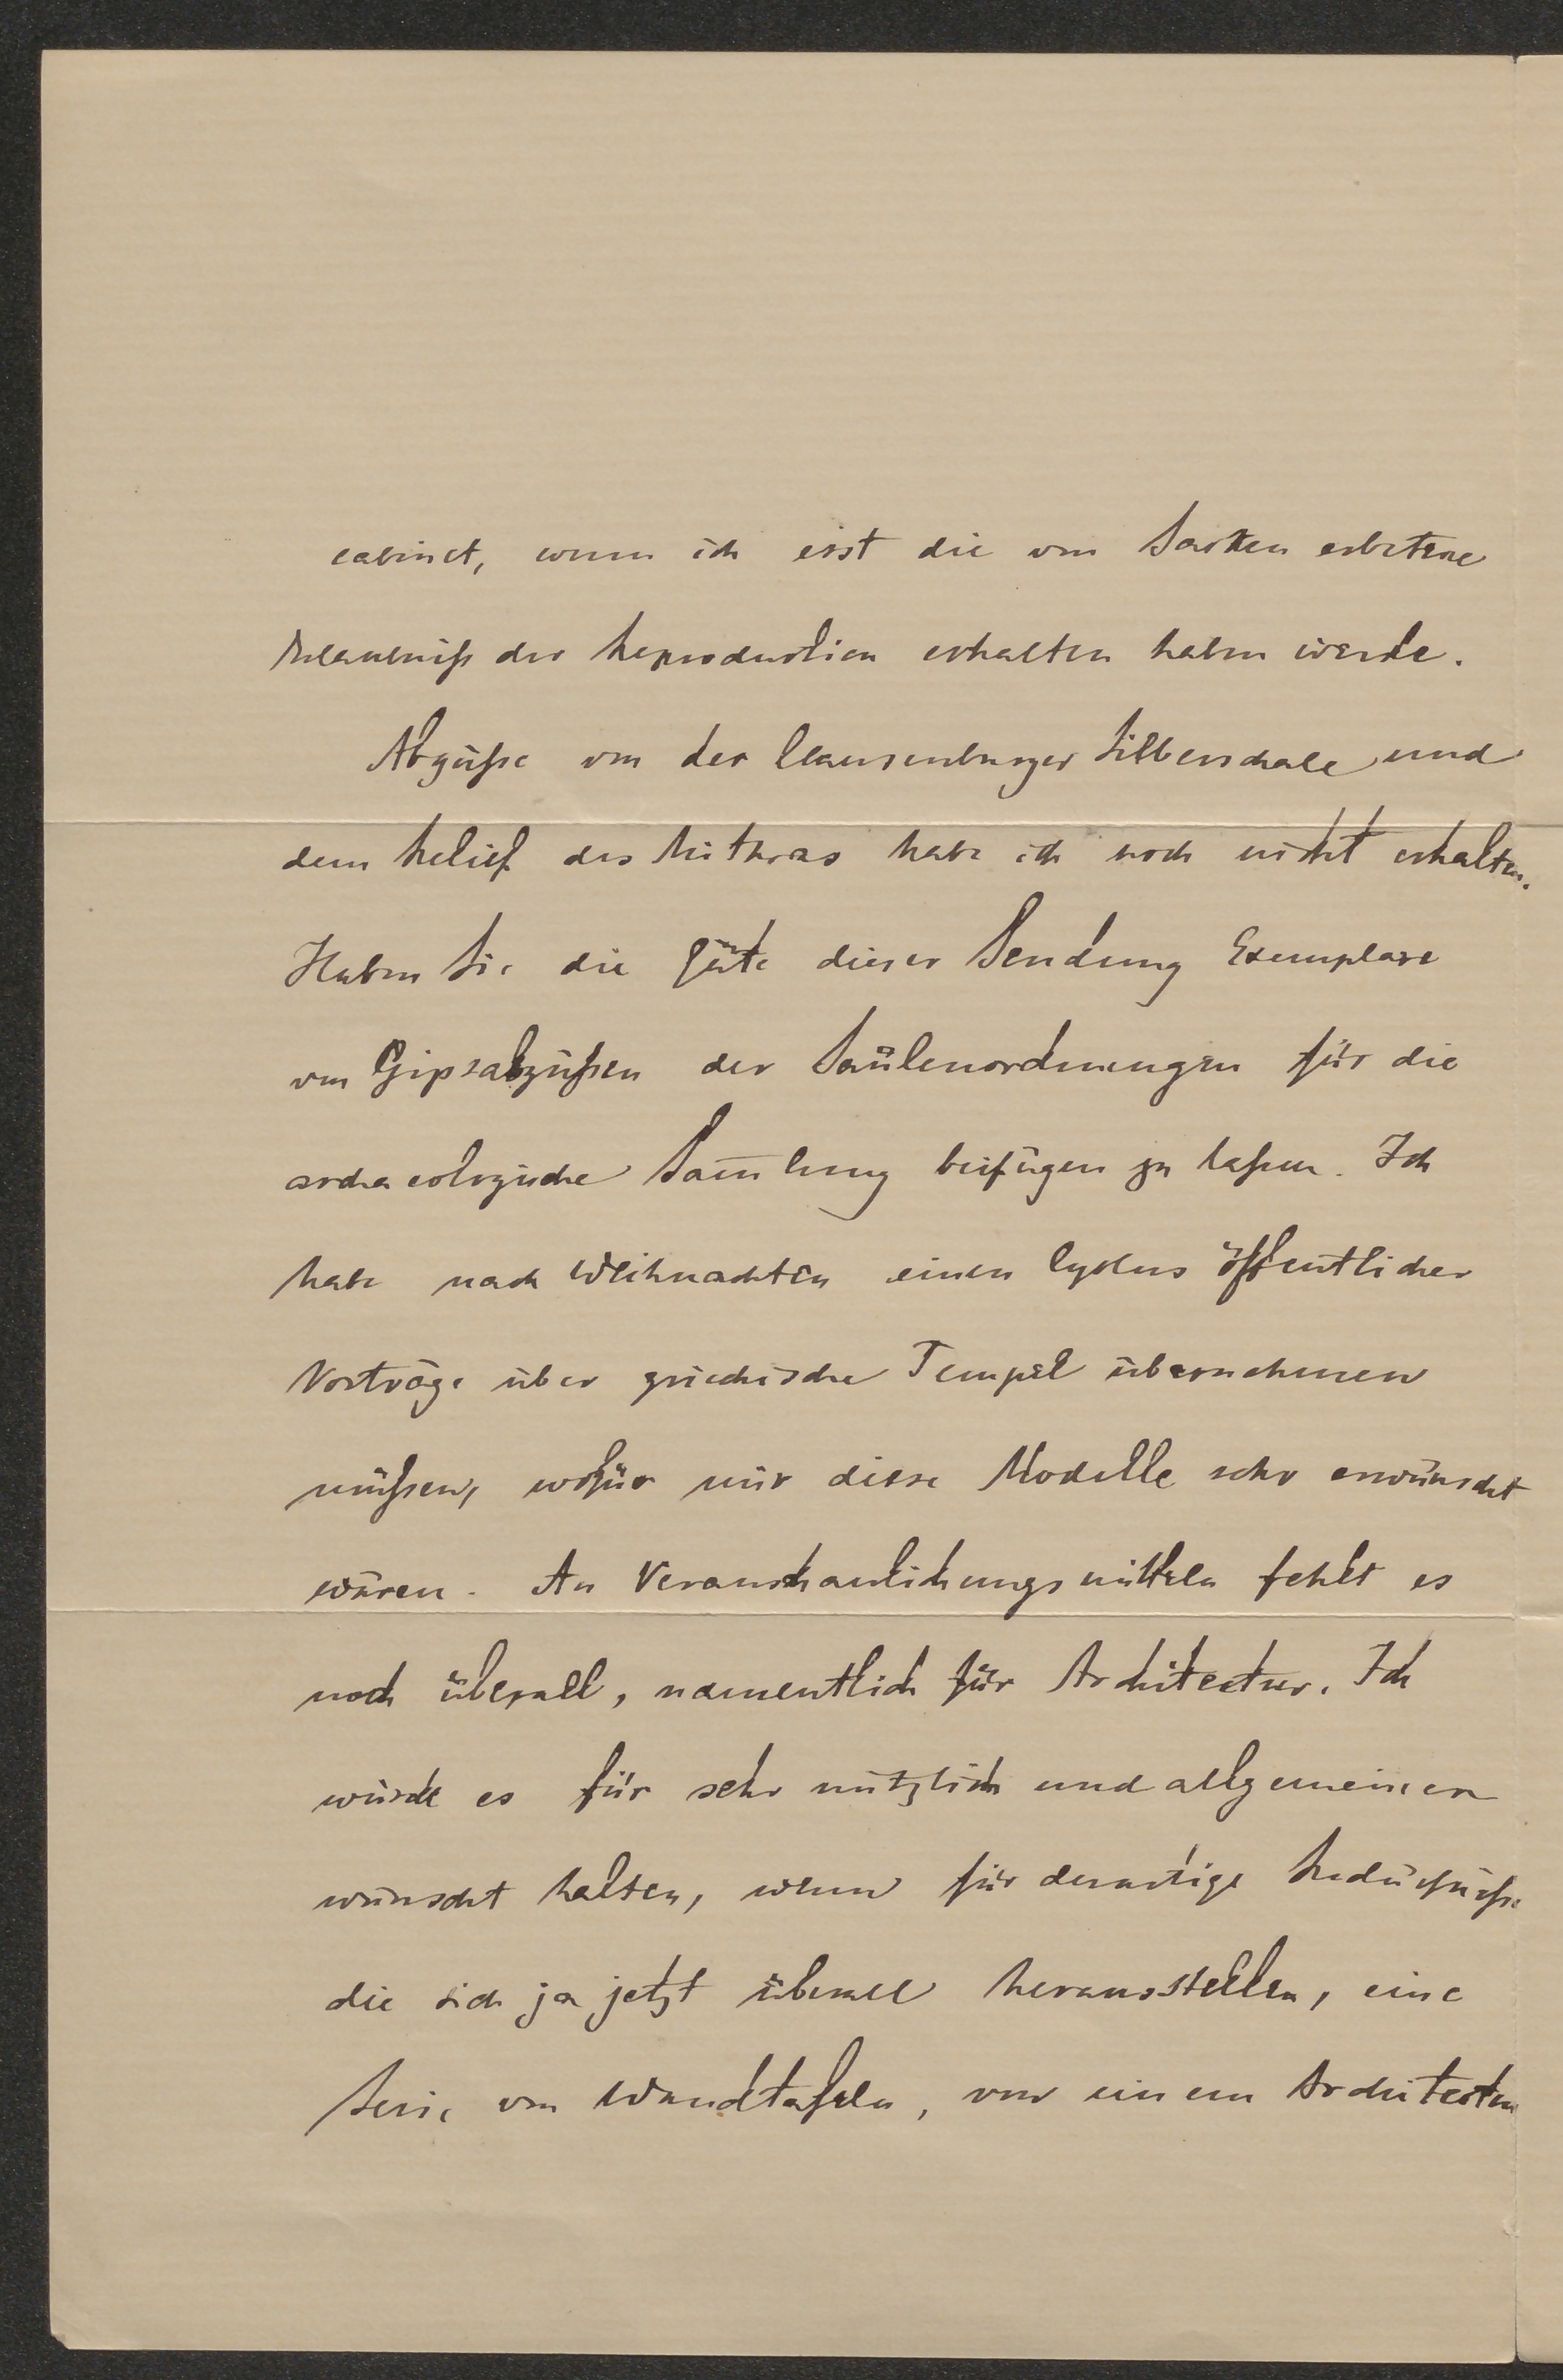 cabinet, wenn ich erst die von Sacken erbetene
Erlaubniß der Reproduction erhalten haben werde.
Abgüße von der Clausenburger Silberschale und
dem Relief des Mithras habe ich noch nicht erhalten.
Haben Sie die Güte dieser Sendung Exemplare
von Gipsabgüßen der Säulenordnungen für die
archaeologische Sam̅lung beifügen zu laßen. Ich
habe nach Weihnachten einen Cyclus öffentlicher
Vorträge über griechische Tempel übernehmen
müßen, wofür mir diese Modelle sehr erwünscht
wären. An Veranschaulichungsmitteln fehlt es
noch überall, namentlich für Architectur. Ich
würde es für sehr nützlich und allgemein er
wünscht halten, wenn für derartige Bedürfniße
die sich ja jetzt überall herausstellen, eine
Serie von Wandtafeln, von einem Architecten